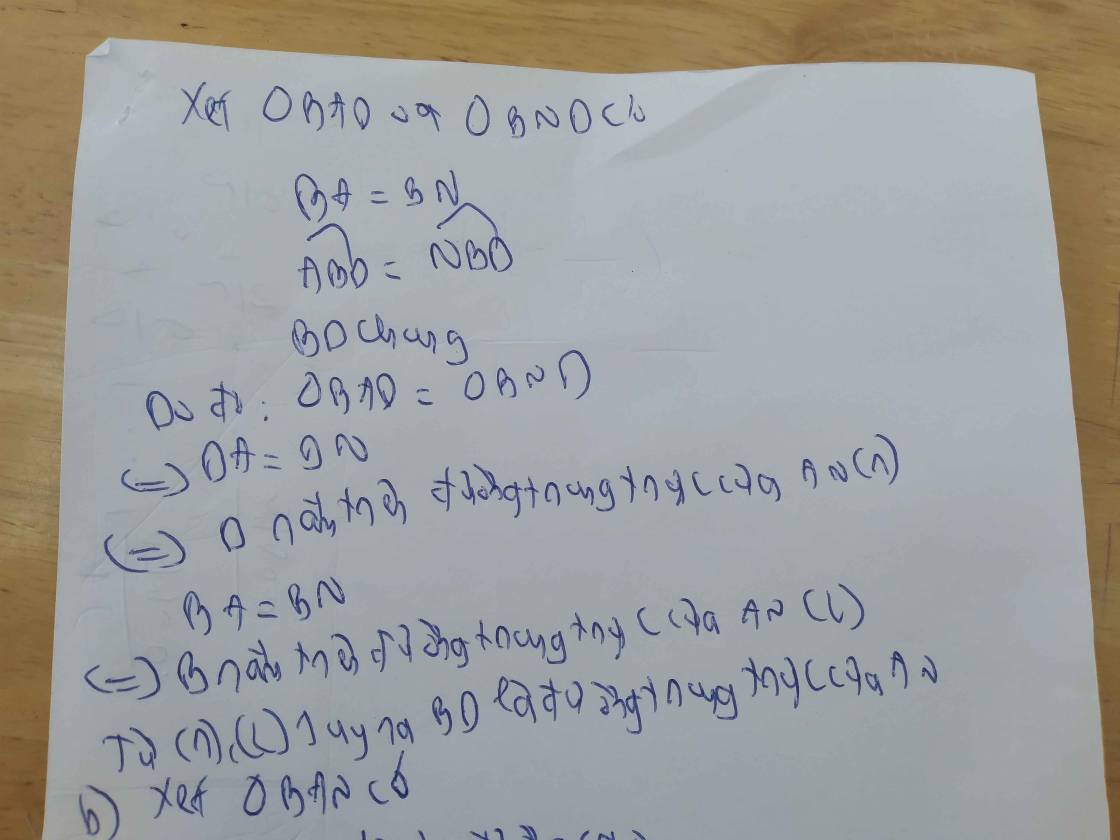 Xét ΔBAD và ΔBND có
BA = BN
ABD = NBD
BD chung
Do đó: ΔBAD = ΔBND
(=) DA = DN
(=) D nằm trên đường trung trực của AN (1)
BA = BN
(=) B nằm trên đường trung trực của AN (2)
Từ (1), (2) suy ra BD là đường trung trực của AN
b) Xét ΔBAN có